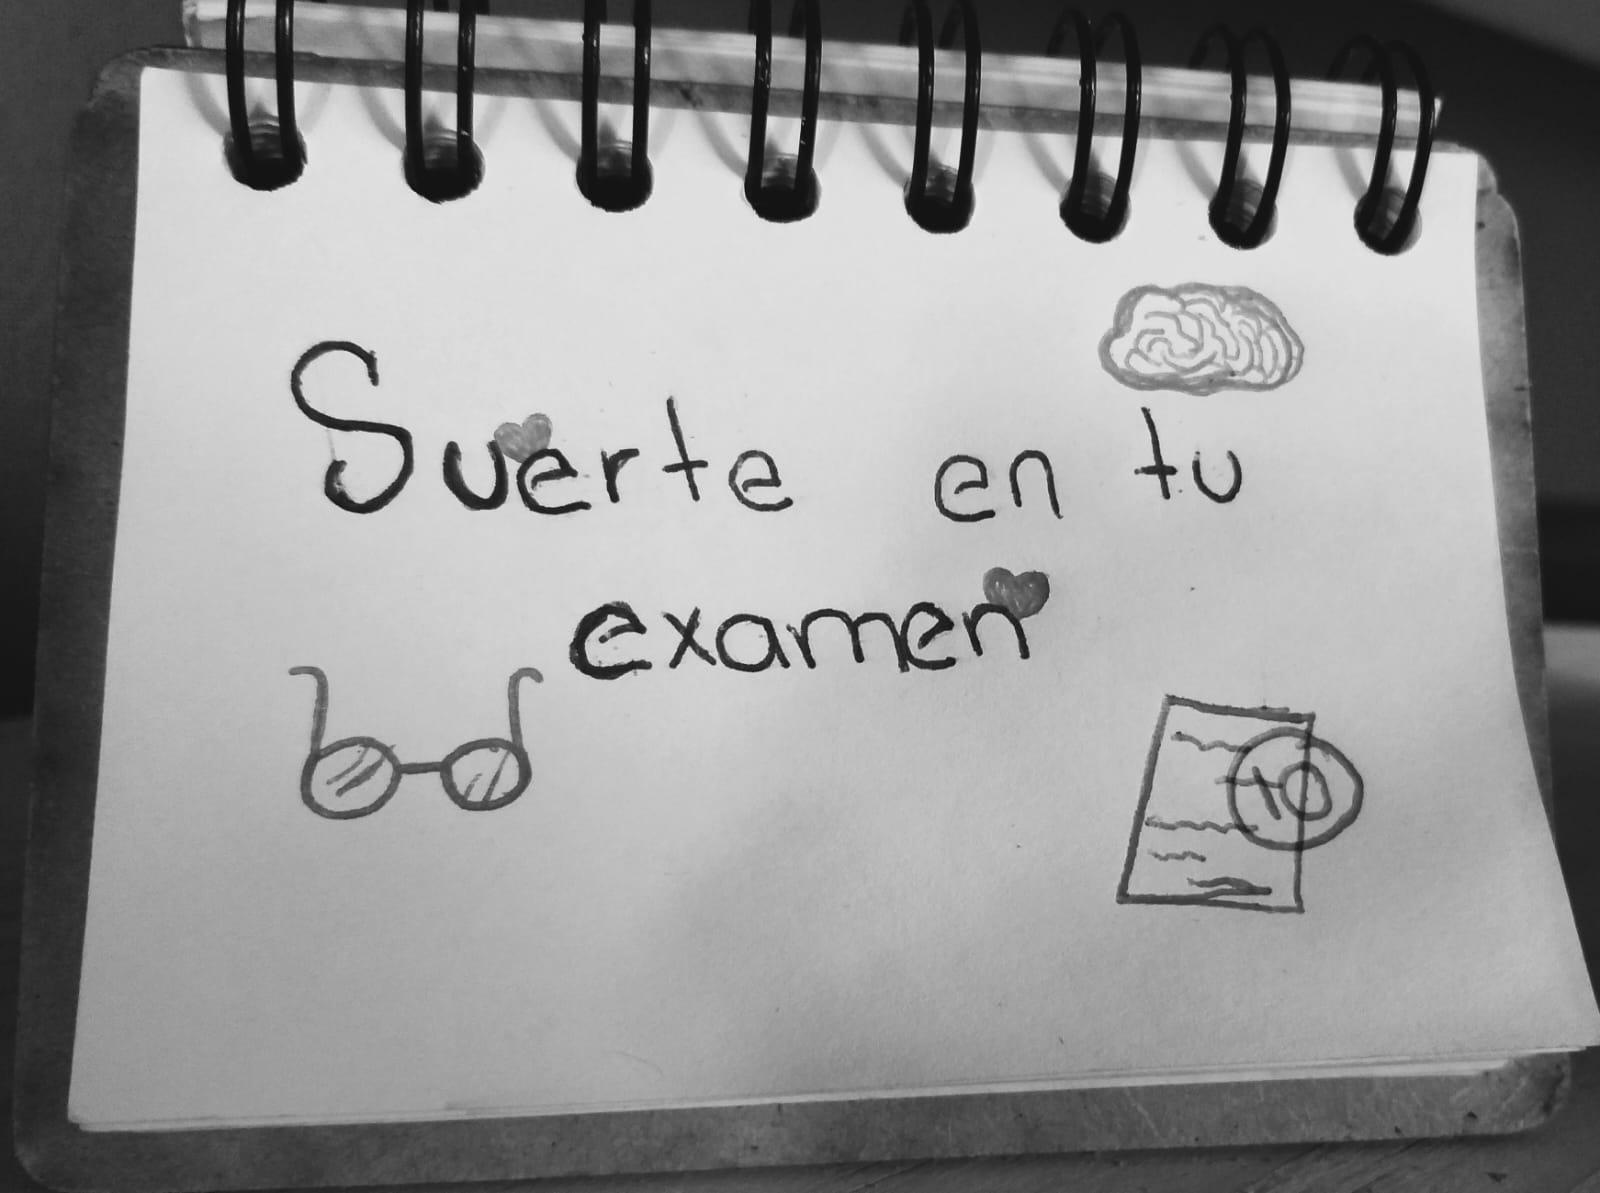 Suerte en tu
examen
10